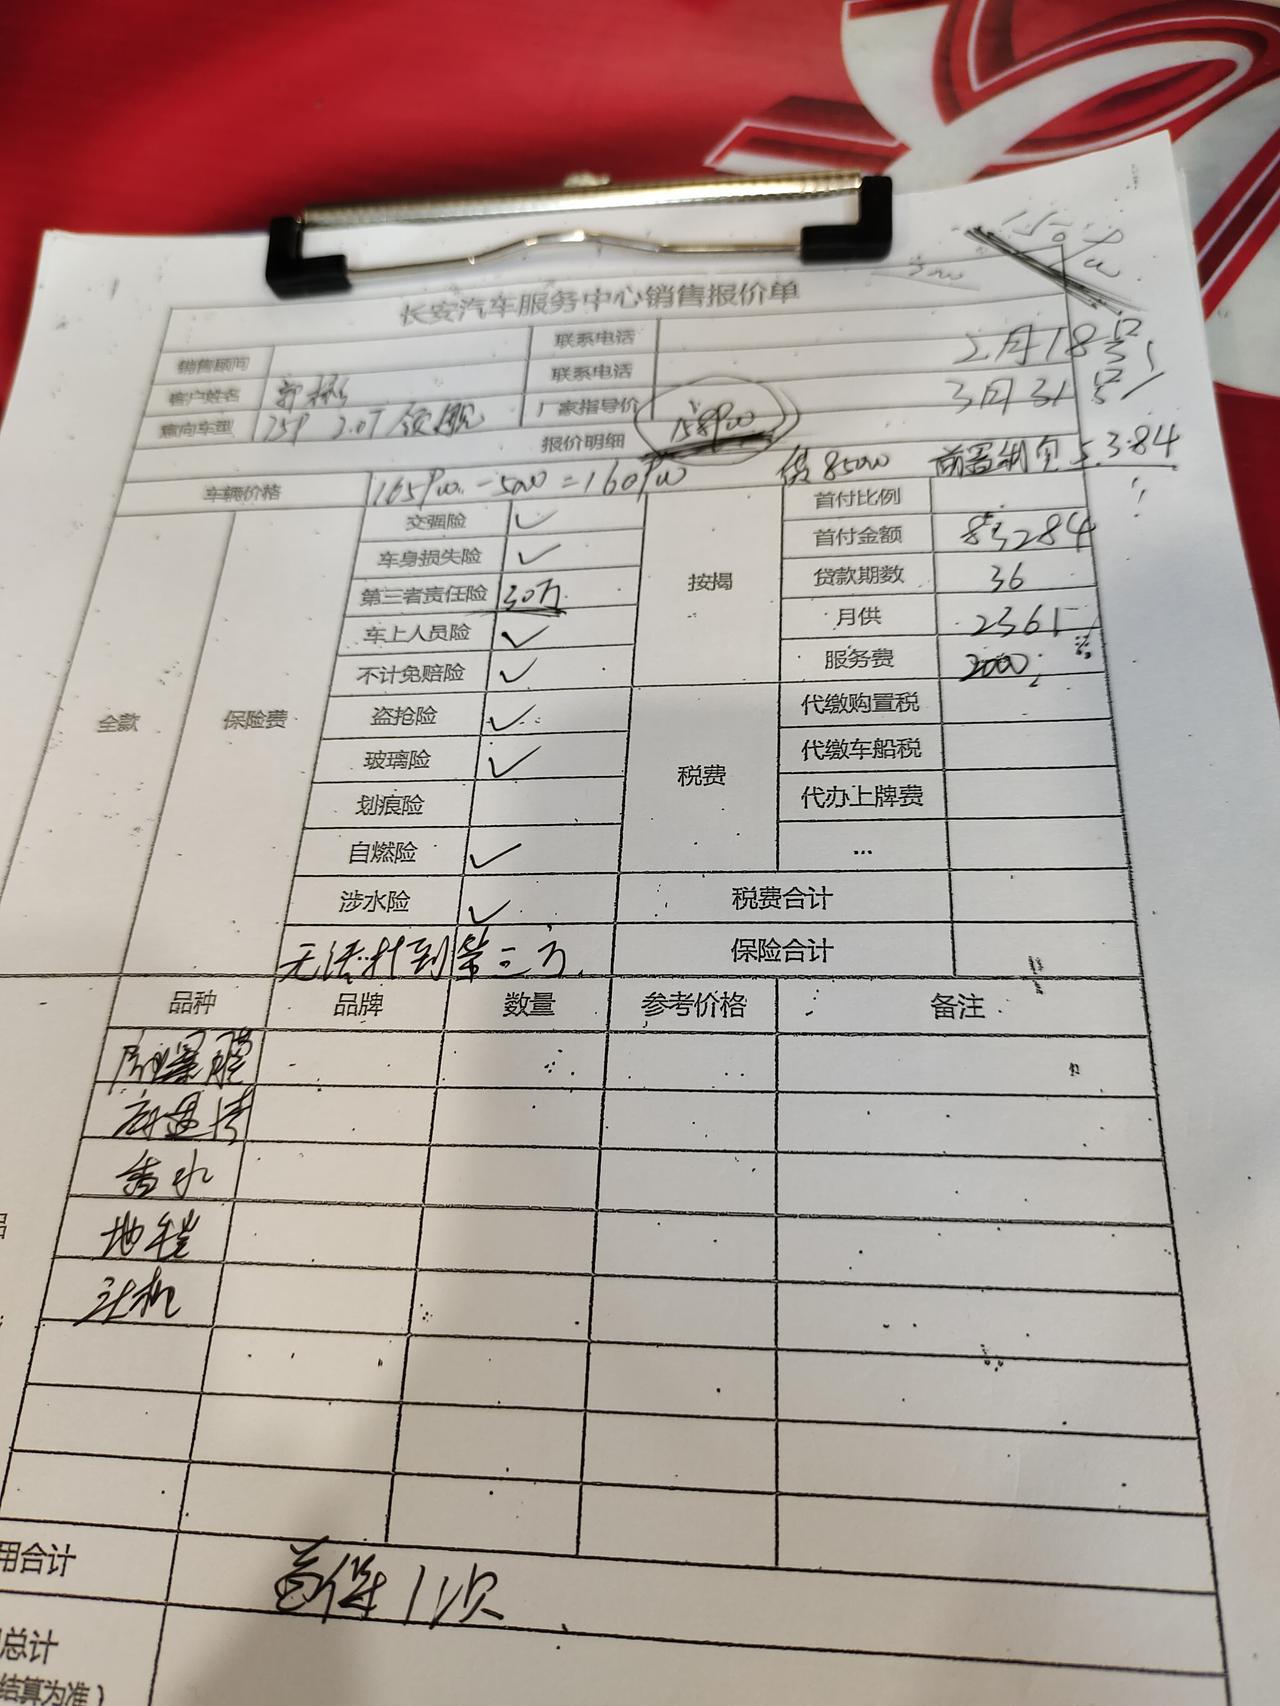 长安汽车服务中心销售报价单
销售顾问 联系电话
2月18号
客户姓名 郭 联系电话
3月31号
意向车型 75P 2.0T 领舰 厂家指导价 158900
报价明细
车辆价格 165900 -5000 = 160900 贷85000 前置利息 5384
全款 保险费 按揭 税费
交强险 ✓ 首付比例
车身损失险 ✓ 首付金额 83284
第三者责任险 30万 贷款期数 36
车上人员险 ✓ 月供 2361
不计免赔险 ✓ 服务费 2000
盗抢险 ✓ 代缴购置税
玻璃险 ✓ 代缴车船税
划痕险 代办上牌费
自燃险 ✓ ...
涉水险 ✓ 税费合计
无法找到第三方 保险合计
品种 品牌 数量 参考价格 备注
防爆膜
香水
地毯
用合计 首保1次
总计
结算为准）